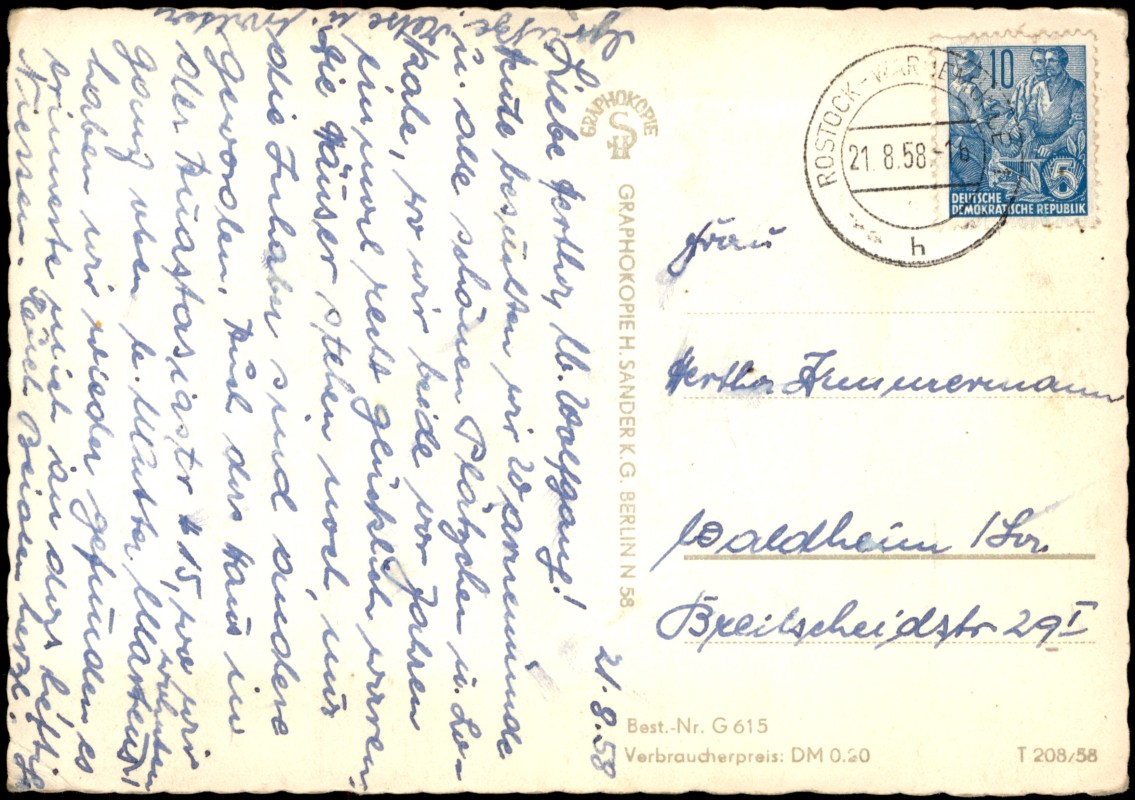 21.8.58
Liebe Hertha, lb. Wolfgang!
Heute besuchten wir Warnemünde
u. alle schönen Plätzchen u. Lo-
kale, wo wir beide vor Jahren
einmal recht glücklich waren
die Häuser stehen noch, nur
die Inhaber sind andere
geworden. Auch das Haus in
der Anastasiastr # 15, wo wir
ganz oben b. Mutter Martens
wohnten
haben wir wieder gefunden es
erinnerte mich an das heftige
Niessen. Euch Beiden herzl.
Grüsse
GRAPHOKOPIE
H S
GRAPHOKOPIE H. SANDER K.G. BERLIN N 58
ROSTOCK-WARNEMÜNDE
21.8.58-16
h
10
5
DEUTSCHE
DEMOKRATISCHE REPUBLIK
Frau
Hertha Zimmermann
Waldheim /Sa.
Breitscheidstr 29 I
Best.-Nr. G 615
Verbraucherpreis: DM 0.20
T 208/58